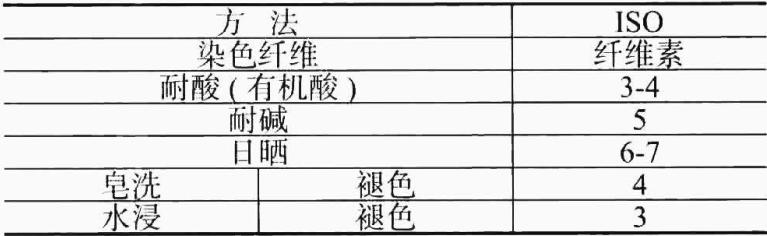 方 法 ISO
染色纤维 纤维素
耐酸(有机酸) 3-4
耐碱 5
日晒 6-7
皂洗 褪色 4
水浸 褪色 3